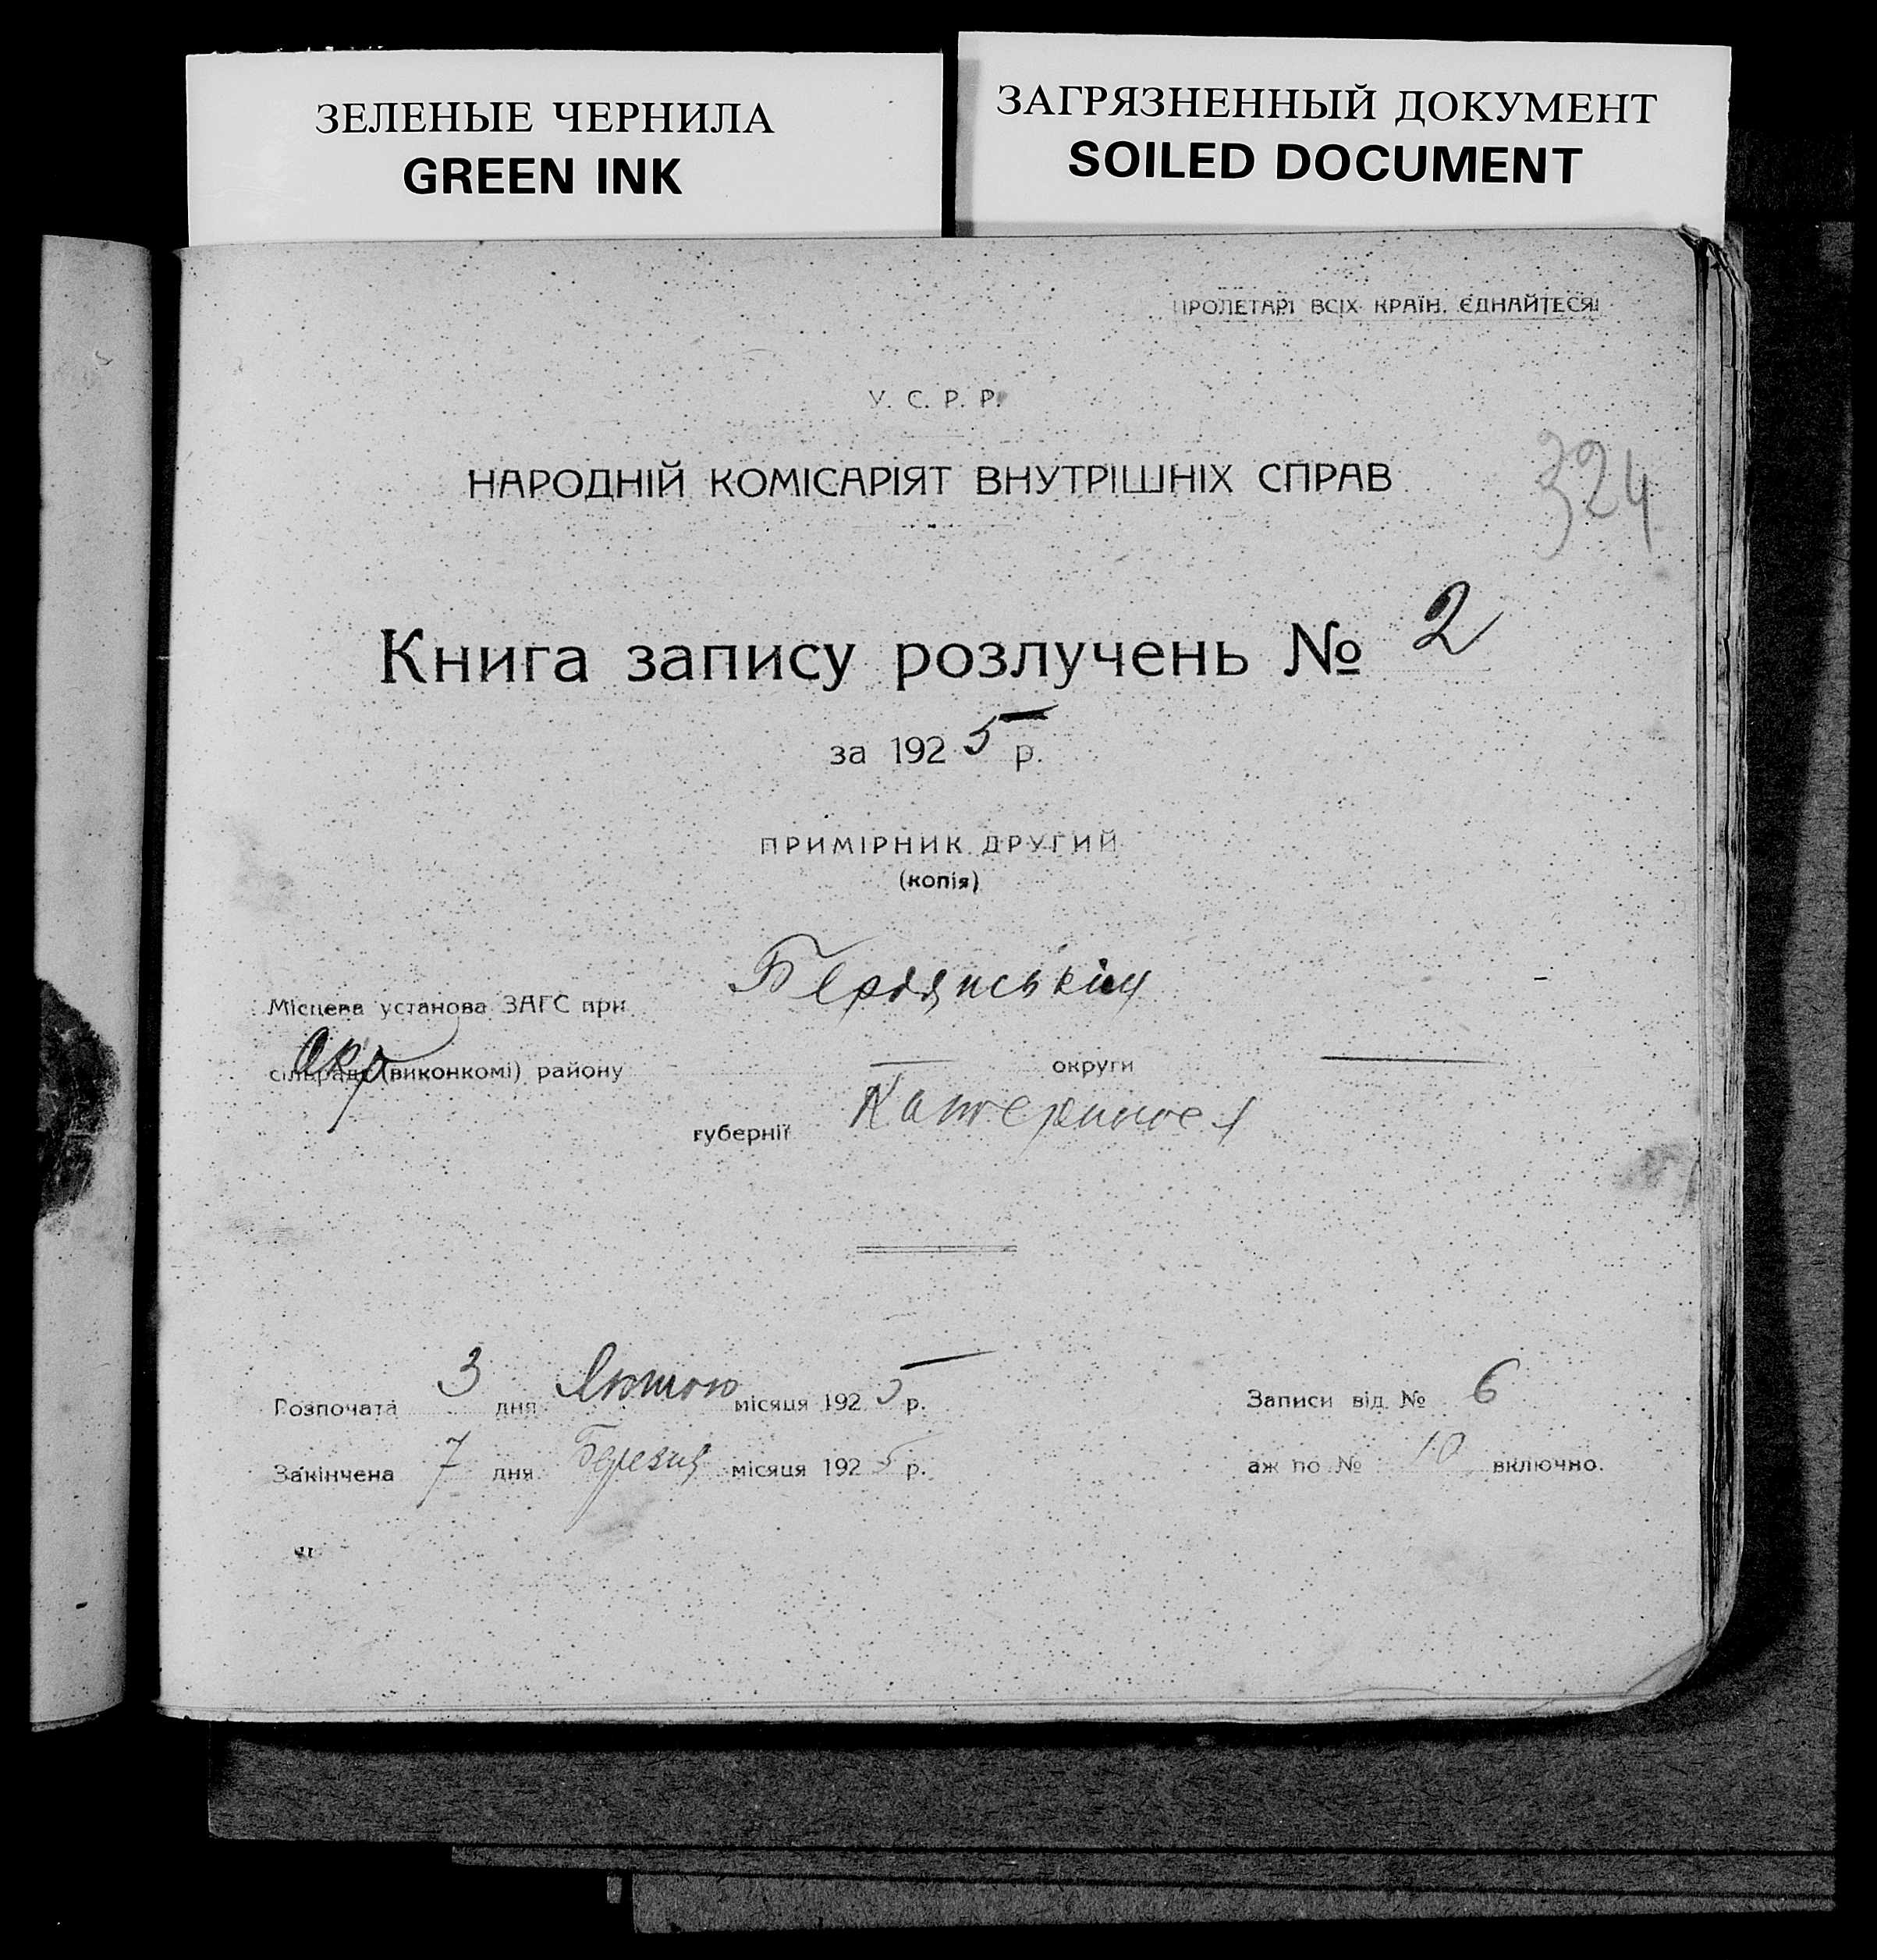 ЗЕЛЕНЫЕ ЧЕРНИЛА
GREEN INK
ЗАГРЯЗНЕННЫЙ ДОКУМЕНТ
SOILED DOCUMENT
ПРОЛЕТАРІ ВСІХ КРАЇН, ЄДНАЙТЕСЯ!
У. С. Р. Р.
324
НАРОДНІЙ КОМІСАРІЯТ ВНУТРІШНІХ СПРАВ
Книга запису розлучень № 2
за 1925 р.
ПРИМІРНИК ДРУГИЙ
(копія)
Місцева установа ЗАГС при Бердянськім
Окр
сільраді (виконкомі) району — округи —
губернії Катеринос
Розпочата 3 дня Лютого місяця 1925 р. Записи від № 6
Закінчена 7 дня Березня місяця 1925 р. аж по № 10 включно.